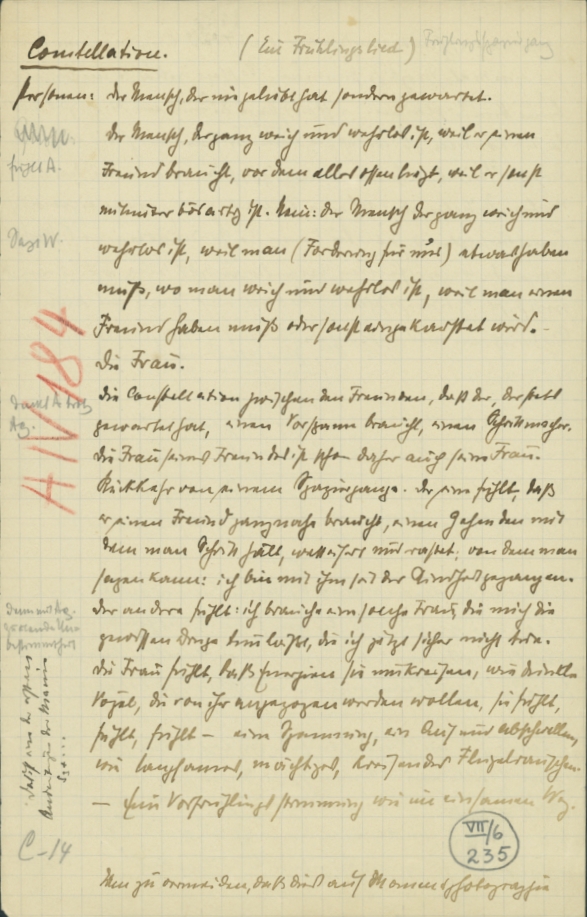 Constellation. (Ein Frühlingslied)
Personen: der Mensch, der nie geliebt hat sondern gewartet.
Der Mensch, der ganz weich und wehrlos ist, weil er einen
Freund braucht, vor dem alles offen liegt, weil er sonst
mitunter bösartig ist. Nein: der Mensch der ganz weich und
wehrlos ist, weil man (Forderung für uns) etwas haben
muß, wo man weich und wehrlos ist, weil man einen
Freund haben muß oder sonst wird.
Die Frau.
Die Constellation zwischen den Freunden, daß der, der stets
gewartet hat, einen Vorspann braucht, einen Schrittmacher.
Die Frau seines Freundes ist daher auch seine Frau.
Rückkehr von einem Spaziergange. Der eine fühlt, daß
er einen Freund ganz nahe braucht, einen Gehenden mit
dem man Schritt hält, wetteifert und rastet; von dem man
sagen kann: ich bin mit ihm seit der Kindheit gegangen.
Der andere fühlt: ich brauche eine solche Frau, die mich die
gewissen Dinge tun läßt, die ich jetzt sicher nicht tue.
Die Frau fühlt, daß Energien sie umkreisen, wie dunkle
Vögel, die von ihr angezogen werden wollen, sie fühlt,
fühlt, fühlt – eine Spannung, ein Auf und Abschwellen
wie langsames, mächtiges, kreisendes Flügelrauschen.
– Eine Vorfrühlingsstimmung wie im einsamen Weg.
Um zu vermeiden, daß dies auf Momentphotographie
fühlt A.
A IV 184
C-14
VII/6
235